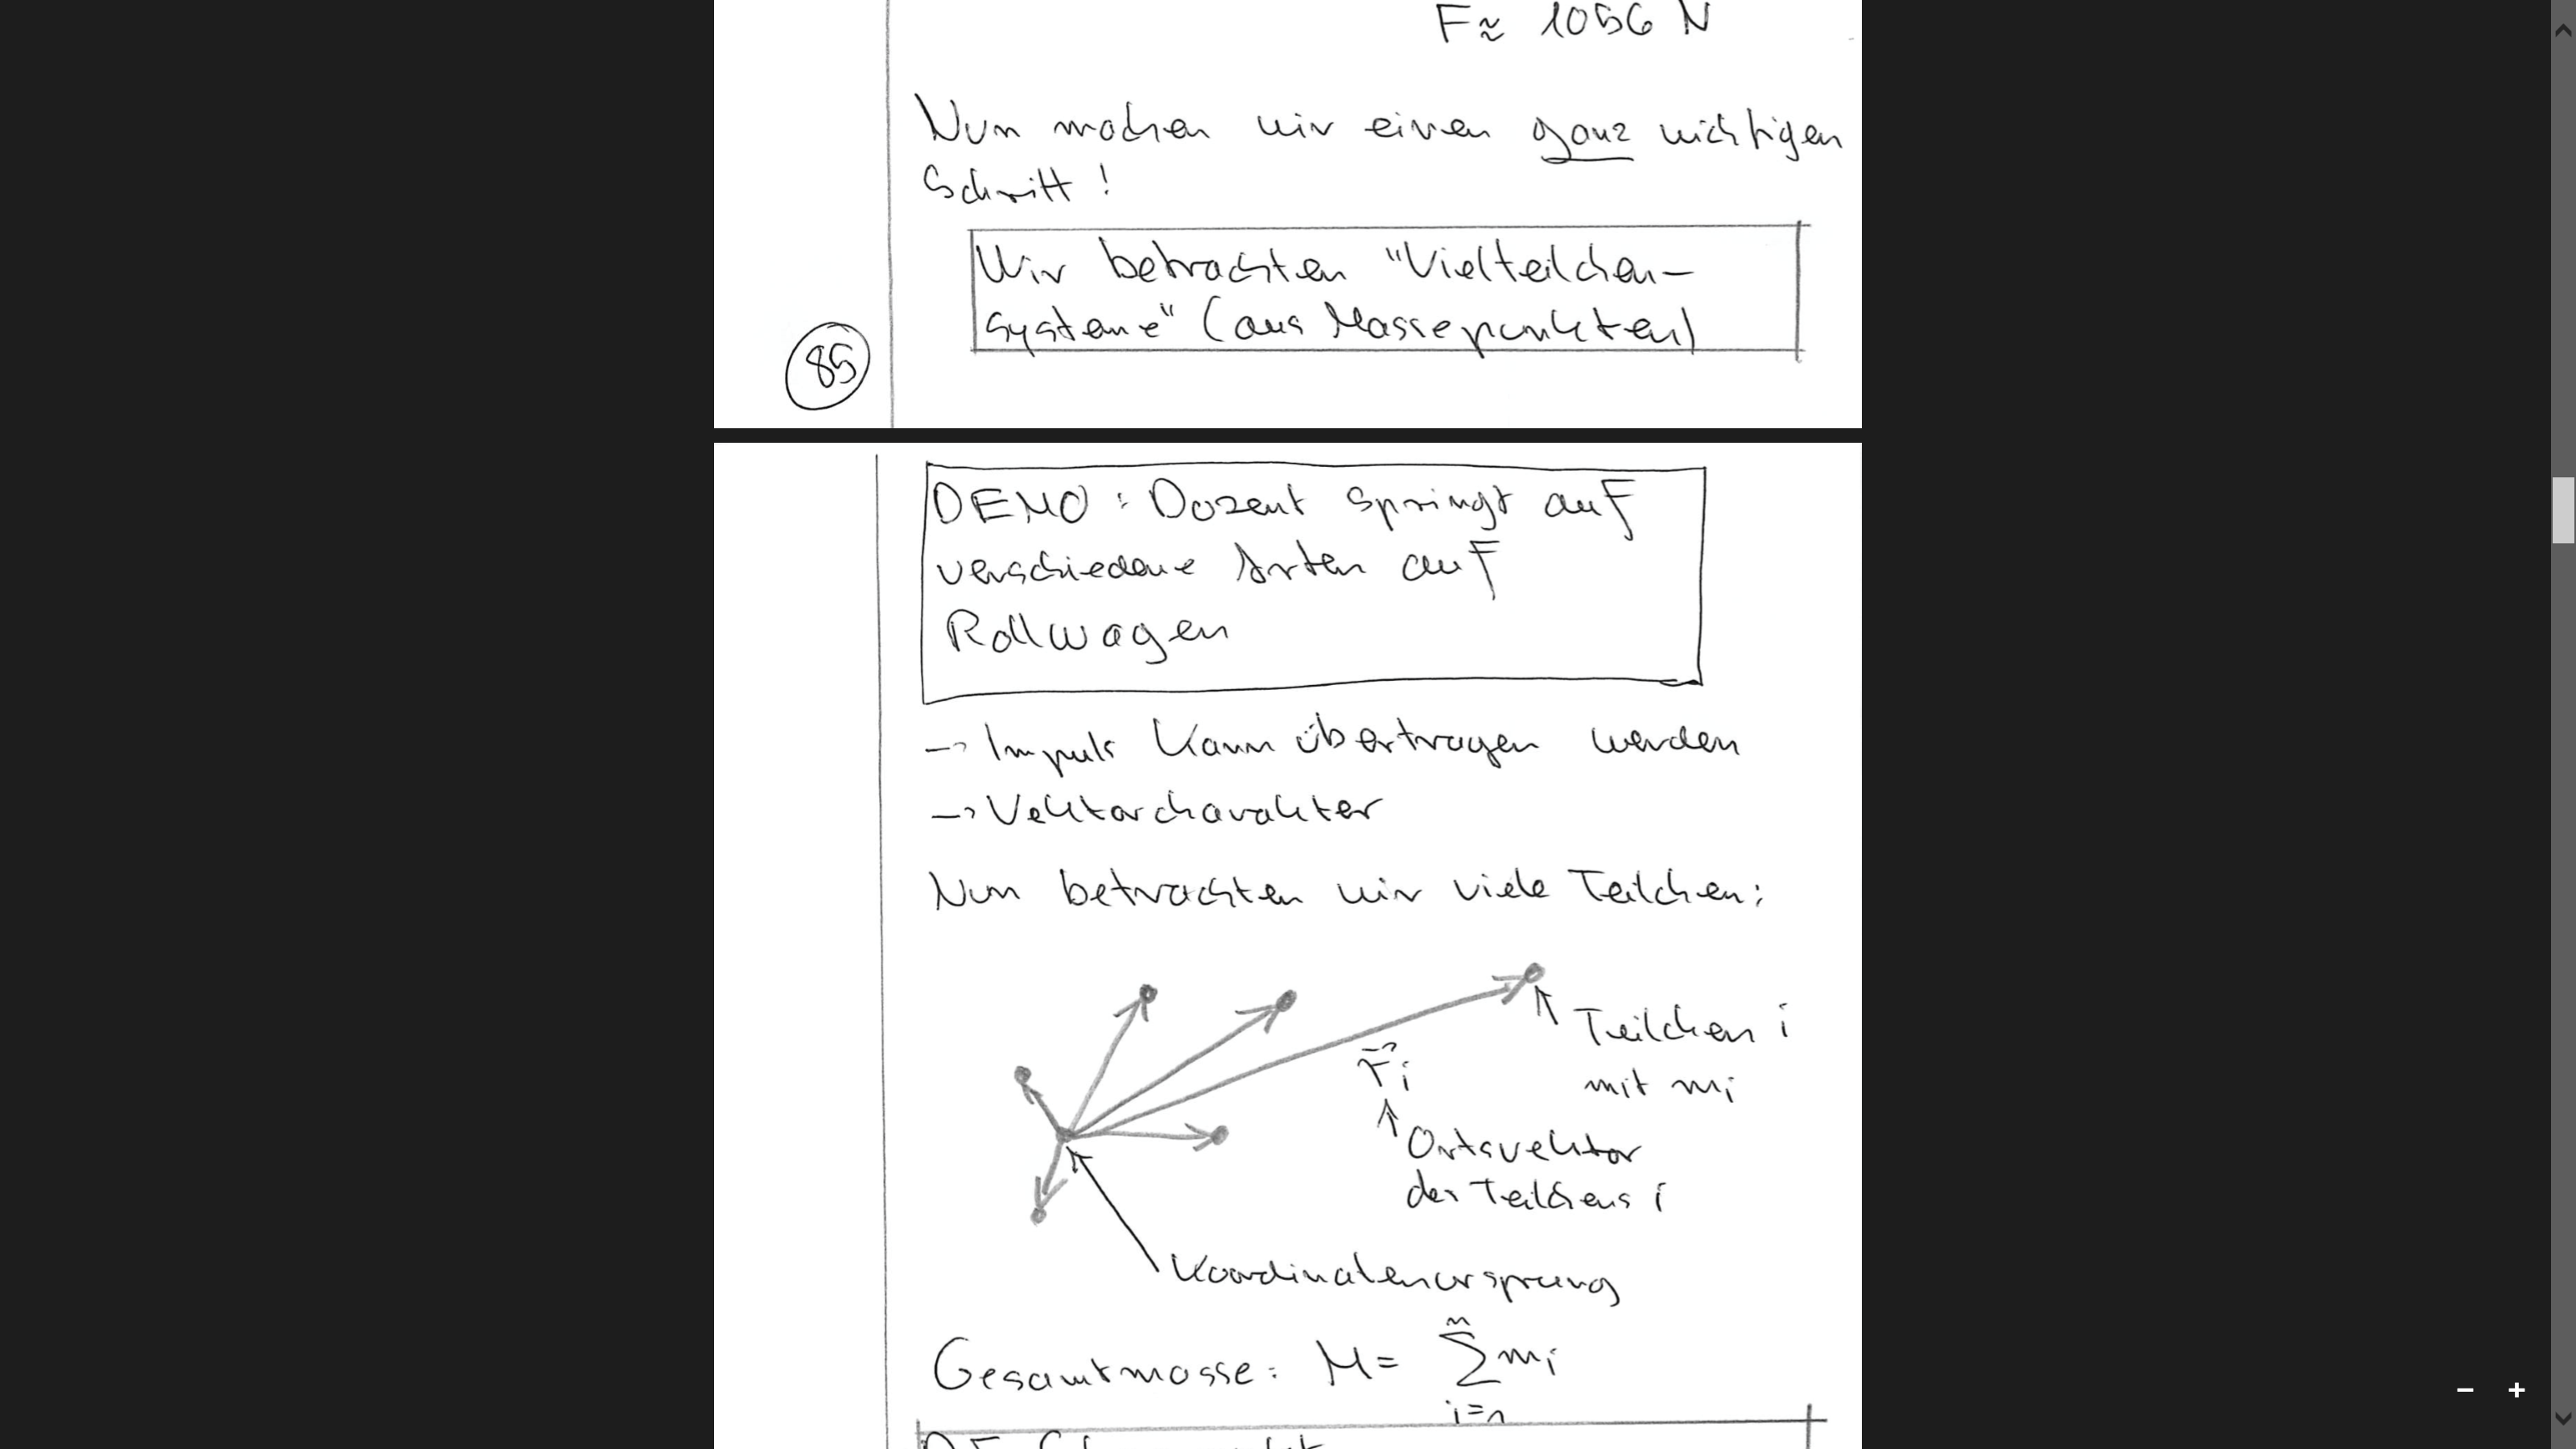 F ≈ 1056 N
Nun machen wir einen ganz wichtigen
Schritt!
Wir betrachten "Vielteilchen-
systeme" (aus Massepunkten)
85
DEMO: Dozent springt auf
verschiedene Arten auf
Rollwagen
-> Impuls kann übertragen werden
-> Vektorcharakter
Nun betrachten wir viele Teilchen:
Teilchen i
mit mi
r⃗i
Ortsvektor
des Teilchens i
Koordinatenursprung
n
Gesamtmasse: M = ∑ mi
i=1